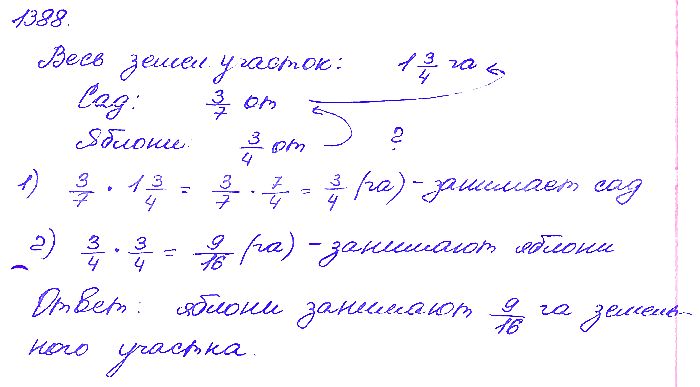 1388.
Весь земел. участок: 1 3/4 га
Сад: 3/7 от
Яблони 3/4 от ?
1) 3/7 · 1 3/4 = 3/7 · 7/4 = 3/4 (га) - занимает сад
2) 3/4 · 3/4 = 9/16 (га) - занимают яблони
Ответ: яблони занимают 9/16 га земель-
ного участка.